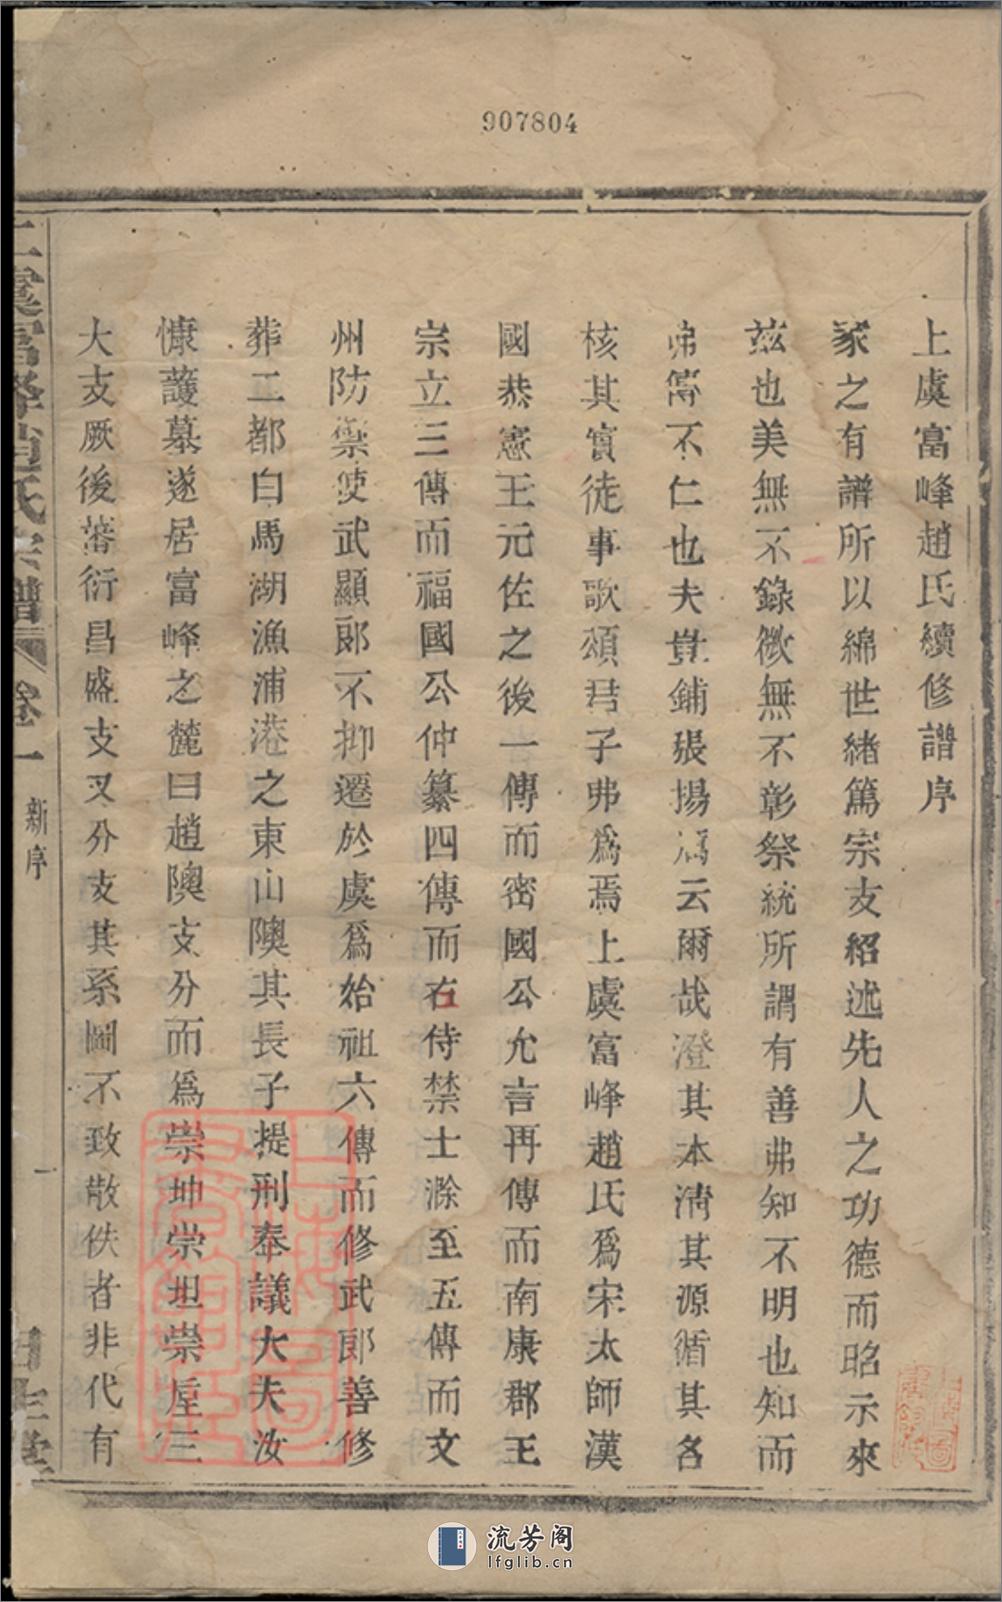 907804
上虞富峰趙氏續修譜序
家之有譜所以綿世緒篤宗支紹述先人之功德而昭示來
茲也美無不錄微無不彰祭統所謂有善弗知不明也知而
弗傳不仁也夫豈鋪張揚厲云爾哉澄其本清其源循其名
核其實徒事歌頌君子弗爲焉上虞富峰趙氏爲宋太師漢
國恭憲王元佐之後一傳而密國公允言再傳而南康郡王
宗立三傳而福國公仲纂四傳而右侍禁士滁至五傳而文
州防禦使武顯郎不抑遷於虞爲始祖六傳而修武郎善修
葬二都白馬湖漁浦港之東山隩其長子提刑奉議大夫汝
慷護墓遂居富峰之麓曰趙隩支分而爲崇坤崇坦崇垕三
大支厥後蕃衍昌盛支又分支其系圖不致散佚者非代有
上虞富峰趙氏宗譜 卷一 新序 一
上海圖書館藏
上海圖書館藏
流芳阁
lfglib.cn